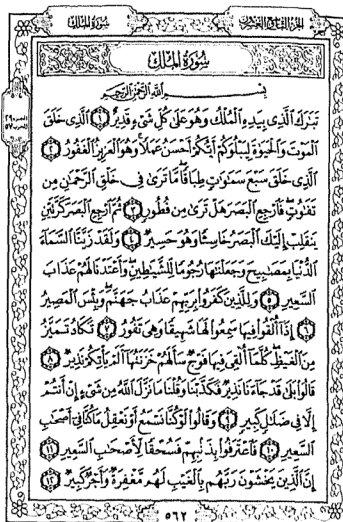 سُورَةُ الْمُلْكِ
سُورَةُ الْمُلْكِ
بِسْمِ اللَّهِ الرَّحْمَٰنِ الرَّحِيمِ
تَبَٰرَكَ ٱلَّذِى بِيَدِهِ ٱلْمُلْكُ وَهُوَ عَلَىٰ كُلِّ شَىْءٍ قَدِيرٌ ١ ٱلَّذِى خَلَقَ
ٱلْمَوْتَ وَٱلْحَيَوٰةَ لِيَبْلُوَكُمْ أَيُّكُمْ أَحْسَنُ عَمَلًا وَهُوَ ٱلْعَزِيزُ ٱلْغَفُورُ ٢
ٱلَّذِى خَلَقَ سَبْعَ سَمَٰوَٰتٍ طِبَاقًا مَّا تَرَىٰ فِى خَلْقِ ٱلرَّحْمَٰنِ مِن
تَفَٰوُتٍ فَٱرْجِعِ ٱلْبَصَرَ هَلْ تَرَىٰ مِن فُطُورٍ ٣ ثُمَّ ٱرْجِعِ ٱلْبَصَرَ كَرَّتَيْنِ
يَنقَلِبْ إِلَيْكَ ٱلْبَصَرُ خَاسِئًا وَهُوَ حَسِيرٌ ٤ وَلَقَدْ زَيَّنَّا ٱلسَّمَآءَ
ٱلدُّنْيَا بِمَصَٰبِيحَ وَجَعَلْنَٰهَا رُجُومًا لِّلشَّيَٰطِينِ وَأَعْتَدْنَا لَهُمْ عَذَابَ
ٱلسَّعِيرِ ٥ وَلِلَّذِينَ كَفَرُوا۟ بِرَبِّهِمْ عَذَابُ جَهَنَّمَ وَبِئْسَ ٱلْمَصِيرُ
٦ إِذَآ أُلْقُوا۟ فِيهَا سَمِعُوا۟ لَهَا شَهِيقًا وَهِىَ تَفُورُ ٧ تَكَادُ تَمَيَّزُ
مِنَ ٱلْغَيْظِ كُلَّمَآ أُلْقِىَ فِيهَا فَوْجٌ سَأَلَهُمْ خَزَنَتُهَآ أَلَمْ يَأْتِكُمْ نَذِيرٌ ٨
قَالُوا۟ بَلَىٰ قَدْ جَآءَنَا نَذِيرٌ فَكَذَّبْنَا وَقُلْنَا مَا نَزَّلَ ٱللَّهُ مِن شَىْءٍ إِنْ أَنتُمْ
إِلَّا فِى ضَلَٰلٍ كَبِيرٍ ٩ وَقَالُوا۟ لَوْ كُنَّا نَسْمَعُ أَوْ نَعْقِلُ مَا كُنَّا فِىٓ أَصْحَٰبِ
ٱلسَّعِيرِ ١٠ فَٱعْتَرَفُوا۟ بِذَنۢبِهِمْ فَسُحْقًا لِّأَصْحَٰبِ ٱلسَّعِيرِ ١١
إِنَّ ٱلَّذِينَ يَخْشَوْنَ رَبَّهُم بِٱلْغَيْبِ لَهُم مَّغْفِرَةٌ وَأَجْرٌ كَبِيرٌ ١٢
٥٦٢